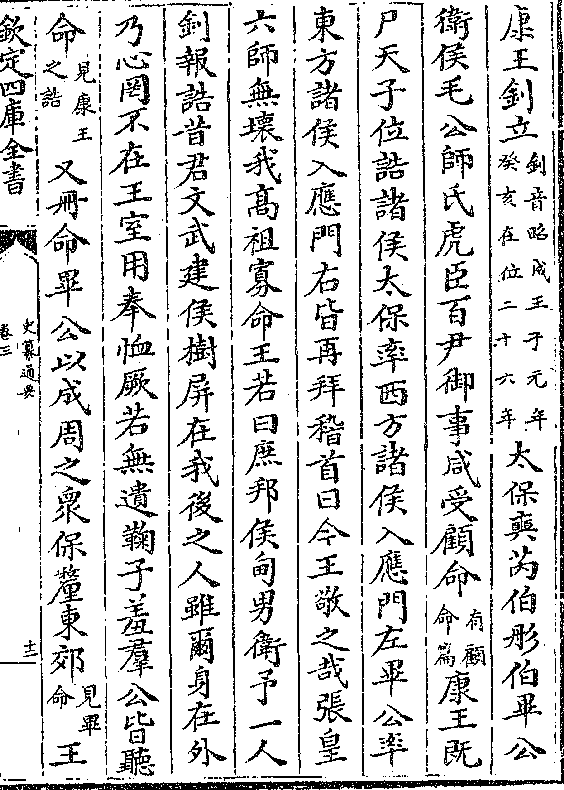 康王釗立釗音昭成王子元年癸亥在位二十六年太保奭芮伯彤伯畢公
衛侯毛公師氏虎臣百尹御事咸受顧命有顧命篇康王既
尸天子位誥諸侯太保率西方諸侯入應門左畢公率
東方諸侯入應門右皆再拜稽首曰今王敬之哉張皇
六師無壞我高祖寡命王若曰庶邦侯甸男衛予一人
釗報誥昔君文武建侯樹屏在我後之人雖爾身在外
乃心罔不在王室用奉恤厥若無遺鞠子羞羣公皆聽
命見康王之誥又冊命畢公以成周之眾保釐東郊見畢命王
欽定四庫全書
史纂通要
卷三
十二